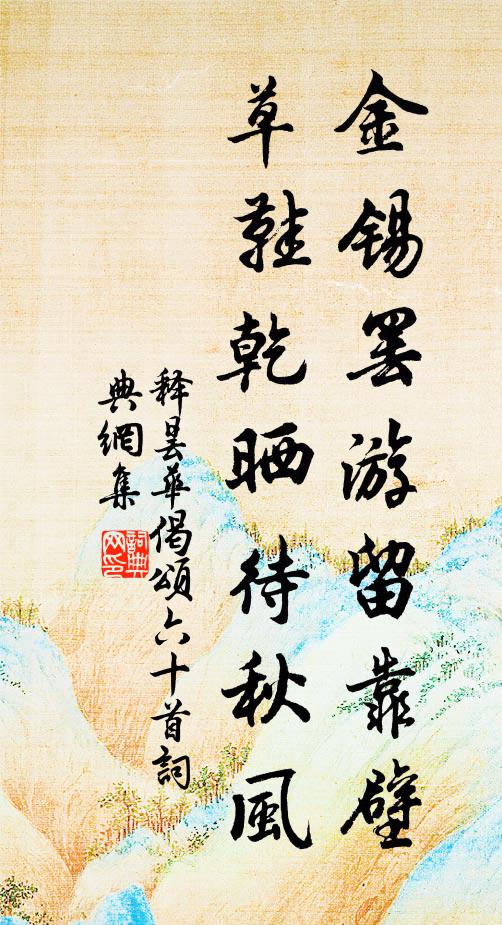 金錫罢游留靠壁
草鞋乾晒待秋風
释昙華偈頌六十首詞
典網集
詞典
网印